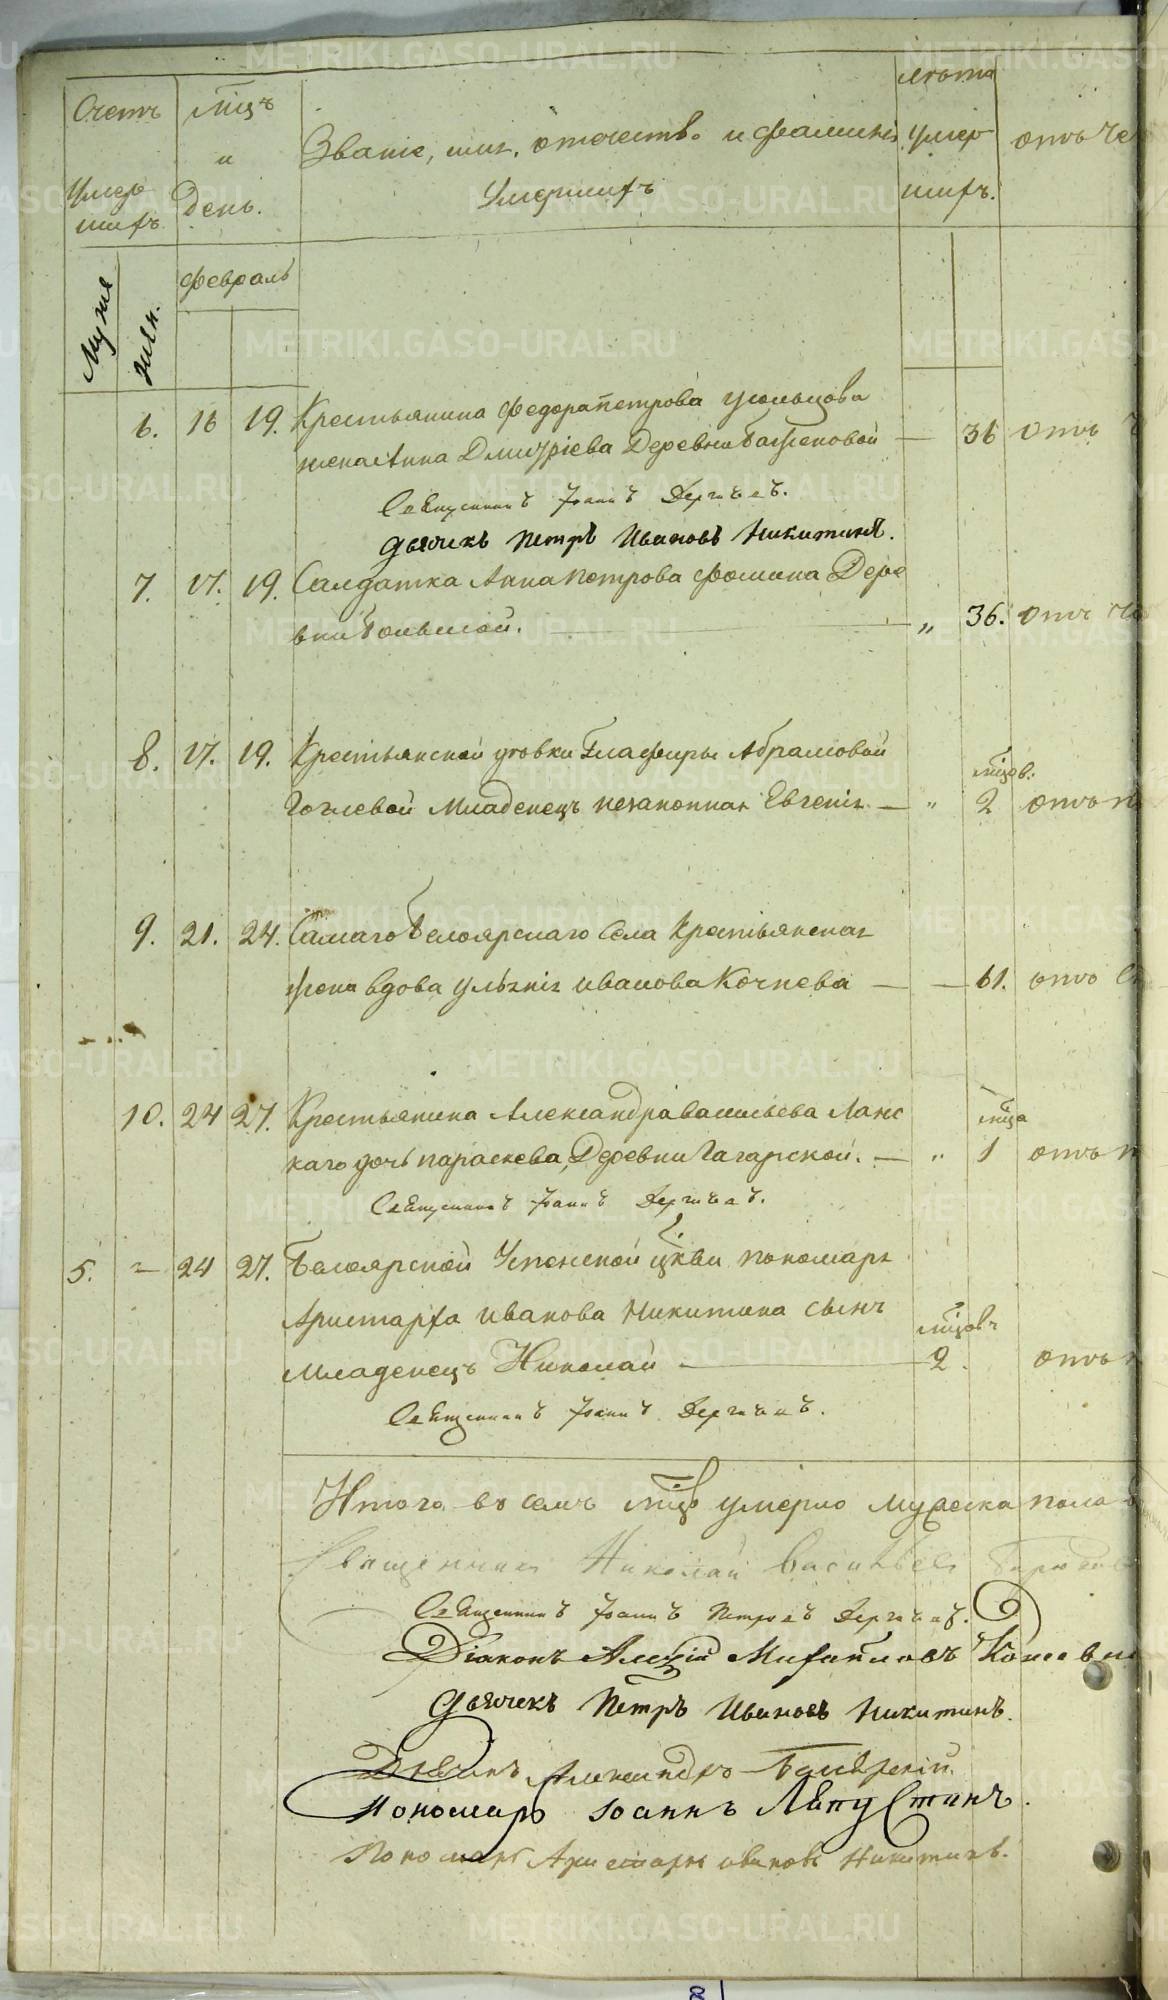 Счетъ
Умер
шихъ
Мцъ
и
День.
Званіе, имя, отечество и фамилия
Умершихъ
лѣта
умер
шихъ.
отъ че
Мужес
жен.
февраль
6. 16 19. Крестьянина Федора Петрова Усольцова
жена Анна Дмитріева Деревни Баженовой — 36 отъ ч
Священникъ Іоаннъ
Дьячекъ Петръ Ивановъ Никитинъ.
7. 17. 19. Салдатка Анна Петрова Фомина Дере
вни Большой. „ 36. отъ ча
8. 17. 19. Крестьянской дѣвки Глафиры Абрамовой
мцов.
Младенецъ незаконная Евгенія — „ 2 отъ
9. 21. 24. Самаго Белоярскаго Села Крестьянская
жена вдова Ульянія Иванова Кочнева — — 61. отъ
10. 24 27. Крестьянина Александра Васильева Ланс
мца
каго дочь Параскева, Деревни Гагарской. — „ 1 отъ
Священникъ Іоаннъ
5. „ 24 27. Белоярской Успенской Цркви пономаря
Аристарха Иванова Никитина сынъ
мцовъ
Младенецъ Николай — 2. отъ
Священникъ Іоаннъ
Итого въ семъ мцѣ умерло мужеска пола
Священникъ Николай Васильевъ
Священникъ Іоаннъ Петровъ
Діаконъ Алексій Михайловъ
Дьячекъ Петръ Ивановъ Никитинъ.
Дьячекъ Александръ
Пономарь Іоаннъ Лапустинъ.
Пономарь Аристархъ Ивановъ Никитинъ.
METRIKI.GASO-URAL.RU